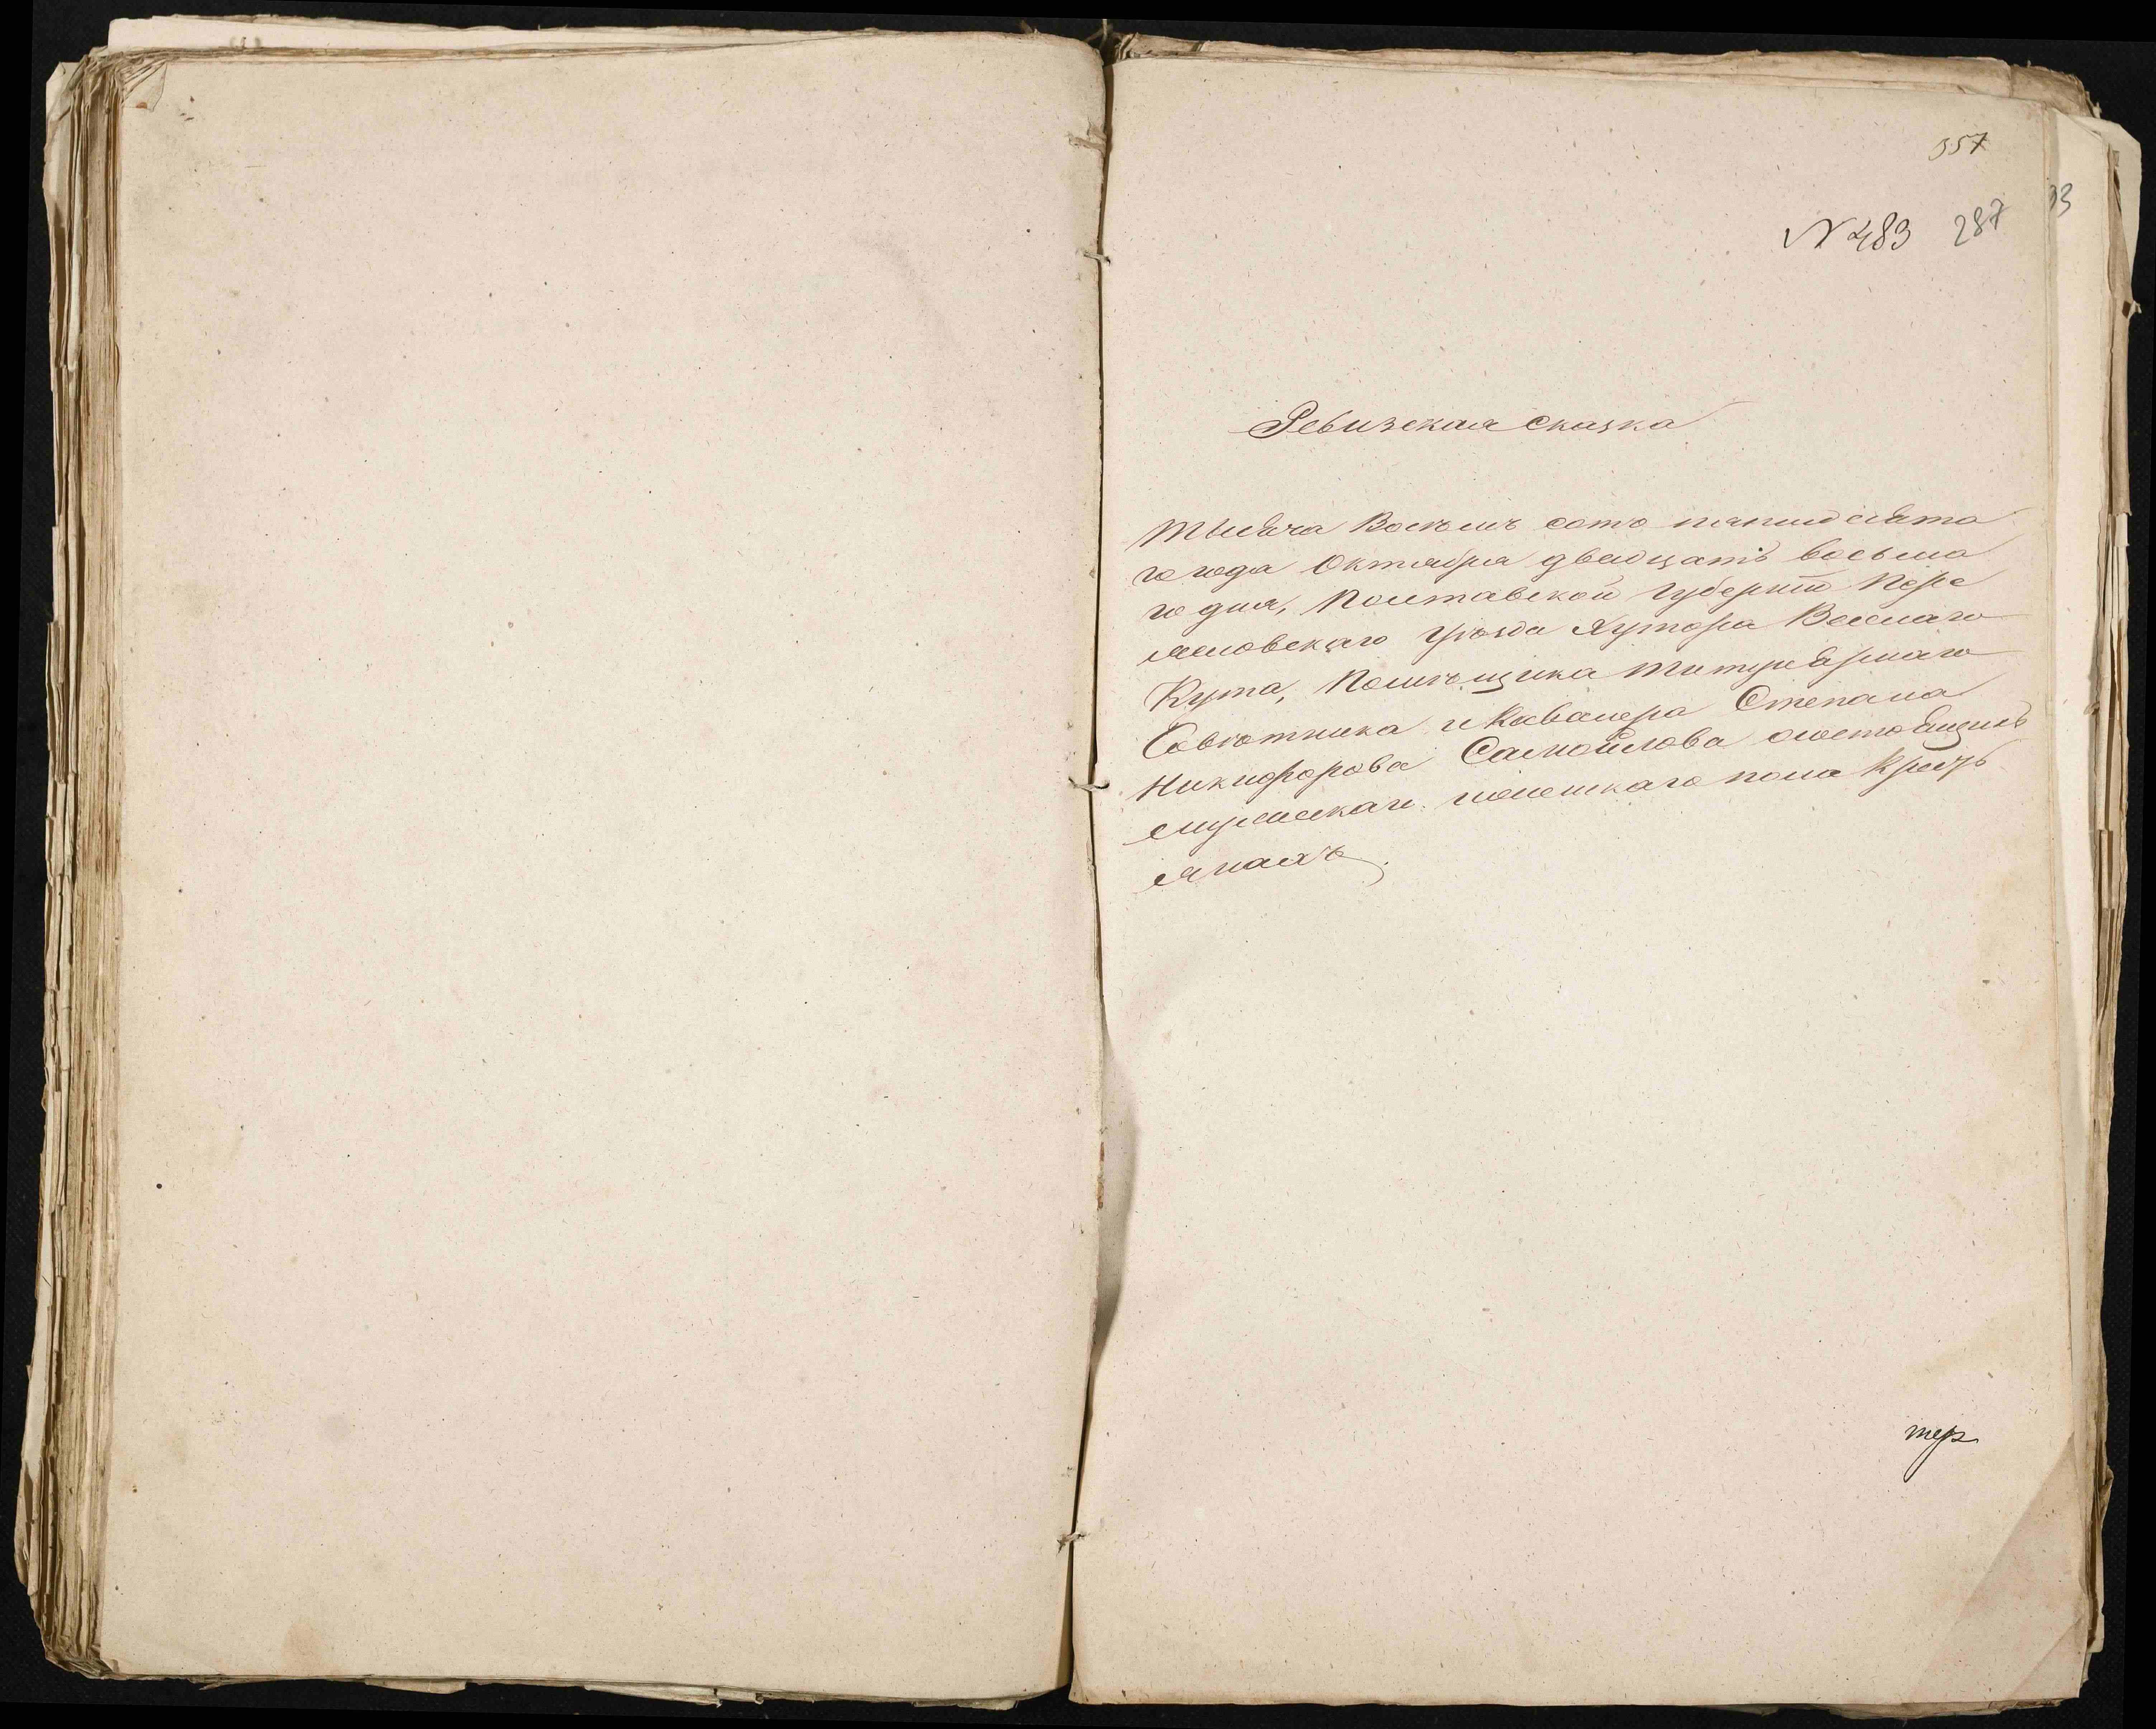 357
93
№ 483 287
Ревизская сказка
Тысяча Восѣмъ сотъ пятидесята
го года Октября двадцать восьма
го дня, Полтавской Губерніи Пере
яславскаго Уѣзда Хутора
Кута, Помѣщика Титулярнаго
Совѣтника и Кавалера Степана
Никифорова Самойлова о состоящихъ
мужескаго и женскаго пола Крестъ
янахъ.